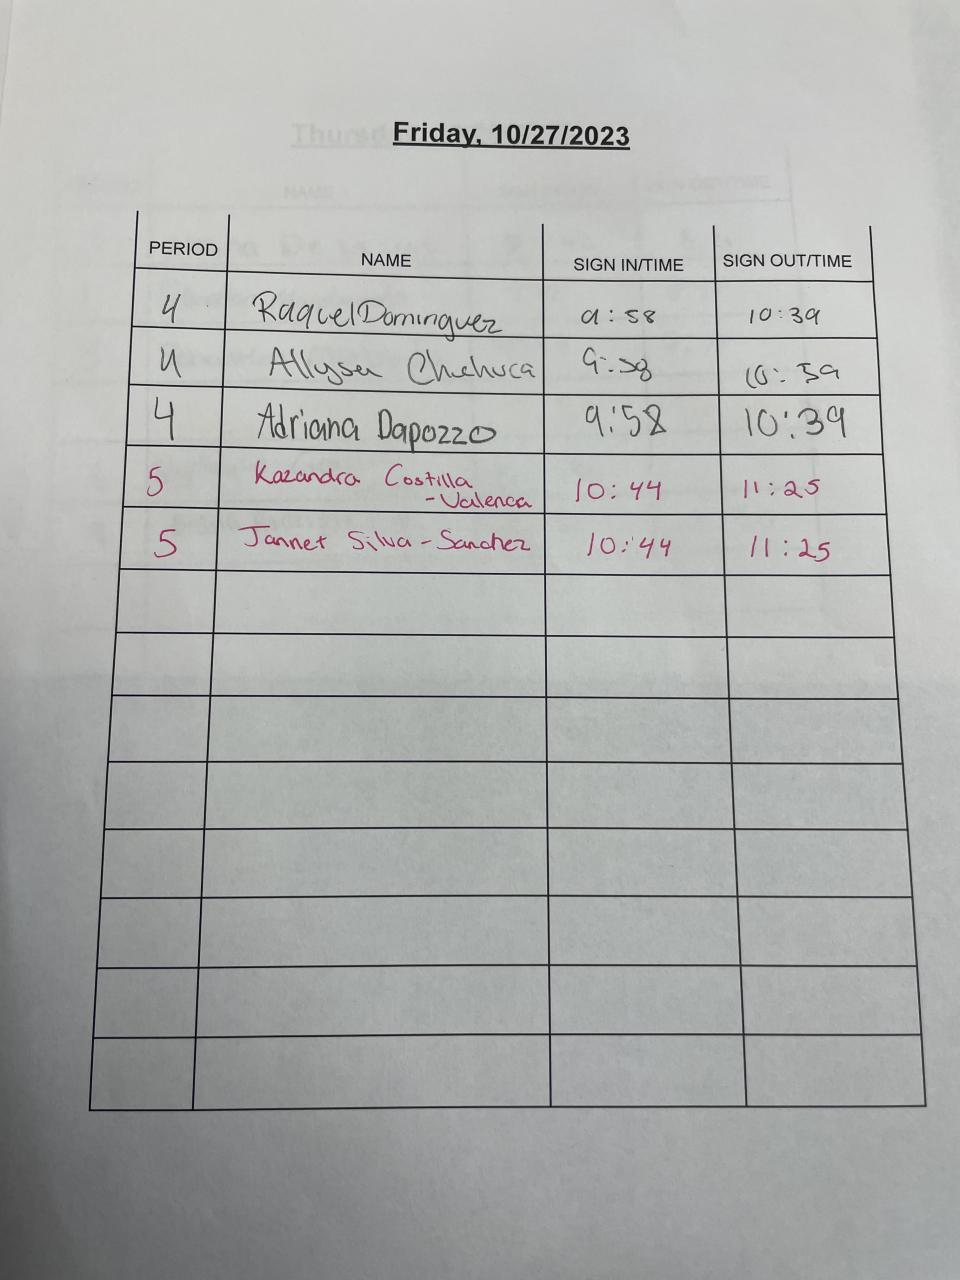 Friday, 10/27/2023
PERIOD NAME SIGN IN/TIME SIGN OUT/TIME
4 Raquel Dominguez 9:58 10:39
4 Allysa Chehuca 9:58 10:39
4 Adriana Dapozzo 9:58 10:39
5 Kazandra Costilla
-Valenca 10:44 11:25
5 Jannet Silva-Sanchez 10:44 11:25